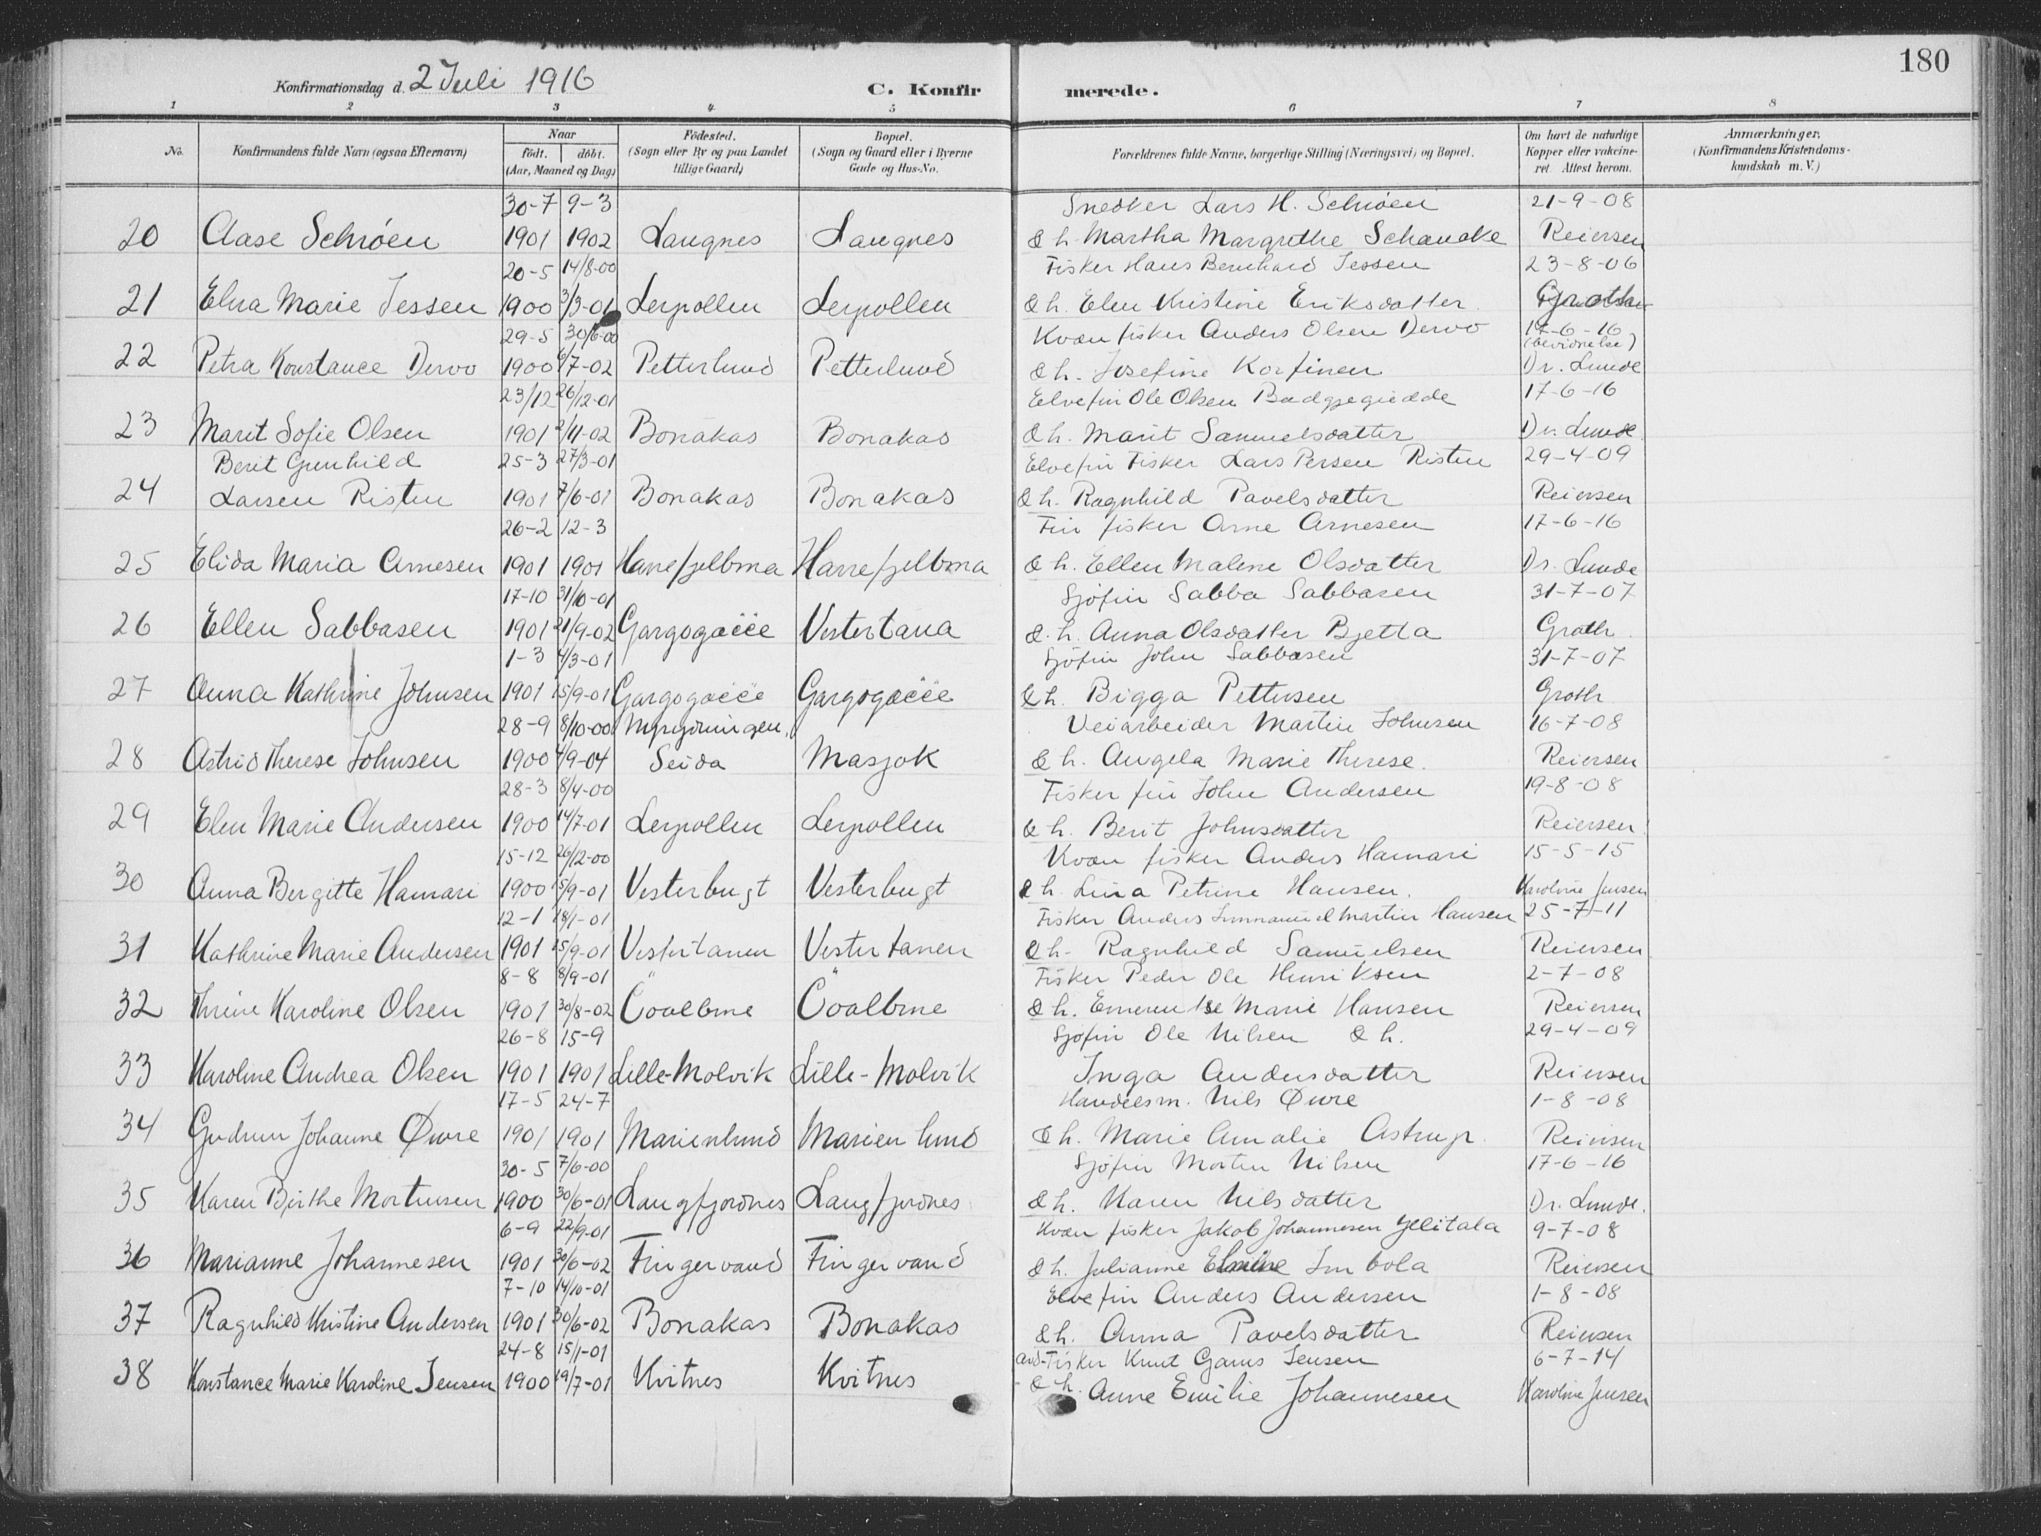 180
Konfirmationsdag d. 2 Juli 1916 C. Konfir merede.
1 2 3 4 5 6 7 8
No. Konfirmandens fulde Navn (ogsaa Efternavn) Naar Födested. Bopæl. Forældrenes fulde Navne, borgerlige Stilling (Næringsvei) og Bopæl. Om havt de naturlige Anmærkninger.
födt. döbt. (Sogn eller By og paa Landet (Sogn og Gaard eller i Byerne Kopper eller vakcine- (Konfirmandens Kristendoms-
(Aar, Maaned og Dag) tillige Gaard) Gade og Hus-No. ret. Attest herom. kundskab m. V.)
30-7 9-3 Snedker Lars H. Schrøen 21-9-08
20 Aase Schrøen 1901 1902 Langnes Langnes & h. Martha Margrethe Schancke Reiersen
20-5 14/8-00 Fisker Hans Bernhard Jessen 23-8-06
21 Elna Marie Jessen 1900 3/3-01 Lerpollen Lerpollen & h. Elen Kristine Eriksdatter Groth
29-5 30/6-00 Kvæn fisker Anders Olsen Dervo 17-6-16
(bevidnelse)
22 Petra Konstance Dervo 1900 6/7-02 Petterlund Petterlund & h. Josefine Korfinen Dr. Lunde
23/12 26/12-01 Elvefin Ole Olsen Badgjegiedde 17-6-16
23 Marit Sofie Olsen 1901 2/11-02 Bonakas Bonakas & h. Marit Samuelsdatter Dr. Lunde
Berit Gunhild 25-3 27/3-01 Elvefin Fisker Lars Persen Risten 29-4-09
24 Larsen Risten 1901 7/6-01 Bonakas Bonakas & h. Ragnhild Pavelsdatter Reiersen
26-2 12-3 Fin fisker Arne Arnesen 17-6-16
25 Elida Maria Arnesen 1901 1901 Harrefjelbma Harrefjelbma & h. Ellen Malene Olsdatter Dr. Lunde
17-10 31/10-01 Sjøfin Sabba Sabbasen 31-7-07
26 Ellen Sabbasen 1901 21/9-02 Gargogæcce Vestertana & h. Anna Olsdatter Bjetta Groth
1-3 4/3-01 Sjøfin John Sabbasen 31-7-07
27 Anna Kathrine Johnsen 1901 15/9-01 Gargogæcce Gargogæcce & h. Bigga Pettersen Groth
28-9 8/10-00 Veiarbeider Martin Johnsen 16-7-08
28 Astrid Therese Johnsen 1900 4/9-04 Seida Masjok & h. Angela Marie Therese. Reiersen
28-3 8/4-00 Fisker fin John Andersen 19-8-08
29 Elen Marie Andersen 1900 14/7-01 Lerpollen Lerpollen & h. Berit Johnsdatter Reiersen
15-12 26/12-00 Kvæn fisker Anders Hamari 15-5-15
30 Anna Bergitte Hamari 1900 15/9-01 Vesterbugt Vesterbugt & h. Lina Petrine Hansen. Karoline Jensen
12-1 18/1-01 Fisker Anders Immanuel Martin Hansen 25-7-11
31 Kathrine Marie Andersen 1901 15/9-01 Vestertanen Vestertanen & h. Ragnhild Samuelsen Reiersen
8-8 8/9-01 Fisker Peder Ole Henriksen 2-7-08
32 Thrine Karoline Olsen 1901 30/8-02 Coalbme Coalbme & h. Emerentse Marie Hansen Reiersen
26-8 15-9 Sjøfin Ole Nilsen & h. 29-4-09
33 Karoline Andrea Olsen 1901 1901 Lille-Molvik Lille-Molvik Inga Andersdatter Reiersen
17-5 24-7 Handelsm. Nils Øwre 1-8-08
34 Gudrun Johanne Øwre 1901 1901 Marienlund Marienlund & h. Marie Amalie Astrup. Reiersen
30-5 7/6-00 Sjøfin Morten Nilsen 17-6-16
35 Karen Birthe Mortensen 1900 30/6-01 Langfjordnes Langfjordnes & h. Karen Nilsdatter Dr. Lunde.
6-9 22/9-01 Kvæn fisker Jakob Johannesen Yelitala 9-7-08
36 Marianne Johannesen 1901 30/6-02 Fingervand Fingervand & h. Julianne Imbola Reiersen
7-10 14/10-01 Elvefin Anders Andersen 1-8-08
37 Ragnhild Kristine Andersen 1901 30/6-02 Bonakas Bonakas & h. Anna Pavelsdatter Reiersen
24-8 15/1-01 Fisker Knut Gams Jensen 6-7-14
38 Konstance Marie Karoline Jensen 1900 19/7-01 Kvitnes Kvitnes & h. Anne Emilie Johannesen Karoline Jensen